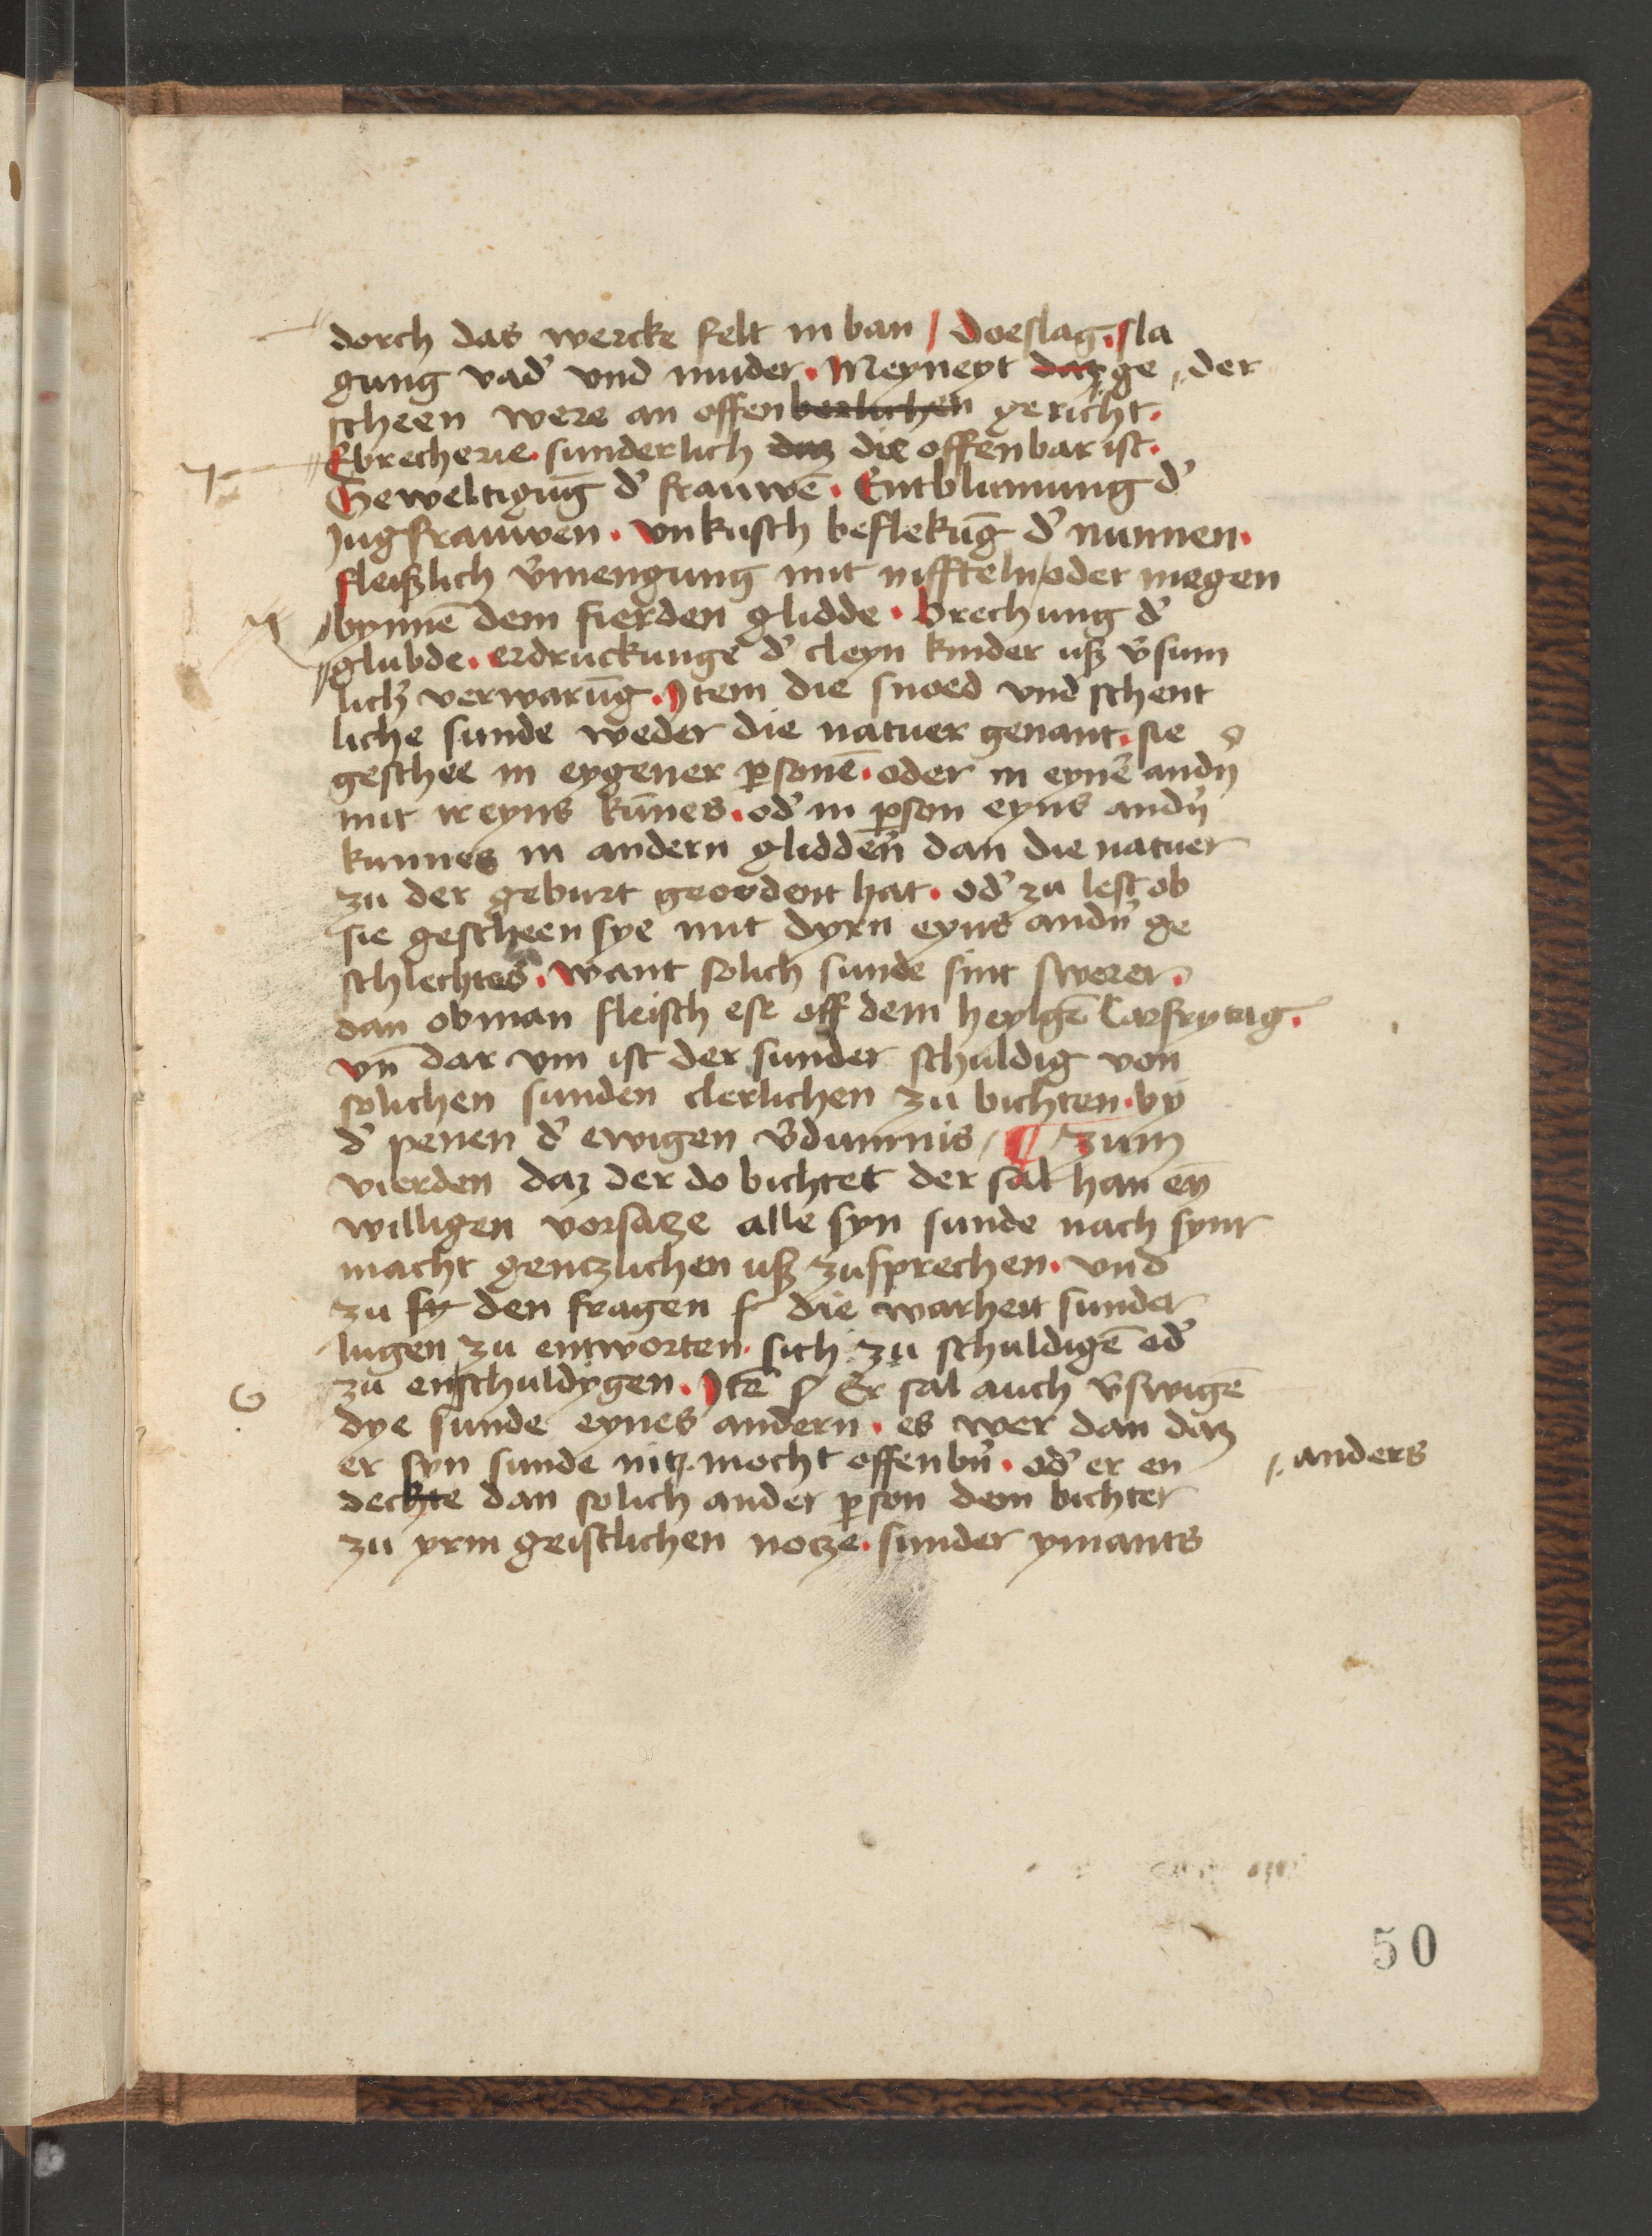 dorch das wercke felt in ban / doeslag. sla
gung vad' vnd muder. Meyneyt daz ge ⸗ der
scheen were an offenberlichen gericht.
Ebrecherie. sunderlich daz die offenbar ist.
Geweltigūg d' frauwē. Entblumung d'
Jugfrauwen. vnkusch beflekūg d' nunnen.
fleißlich v'mengung mit niffteln / oder megen
bynnē dem fierden glidde. brechung d'
glubde. erdruckunge d' cleyn kinder uß v'sum
lich' verwarūg. Jtem die snoed vnd schent
liche sunde weder die natuer genant. sie
geschee in eygener p̱sonē. oder in eynē andn̄
mit eyns kūnes. od' in p̱son eyns andn̄
kunnes in andern glidden dan die natuer
zu der geburt geordent hat. od' zu lest ob
sie gescheen sye mit dyrn eyns andn̄ ge
schlechtes. want solich sunde sint swerer.
dan obman fleisch ese off dem heylgē Carfrytag.
vn̄ dar vm ist der sunder schuldig von
solichen sunden clerlichen zu bichten. by
d' penen d' ewigen v'dumnis / ¶ zum
vierden daz der do bichtet der sal han eȳ
willigen vorsatze alle syn sunde nach synr
macht gentzlichen uß zusprechen. vnd
zu den fragen die warheit sunder
lugen zu entworten. sich zu schuldigē od'
zu enschuldygen. Jtē Er sal auch v'swigē
dye sunde eynes andern. es wer dan daz
er syn sunde nit mocht offenbn̄. od' er en ⸗ anders
deckte dan solich ander p̱son dem bichter
zu yrm geistlichen notze. sunder ymants
50